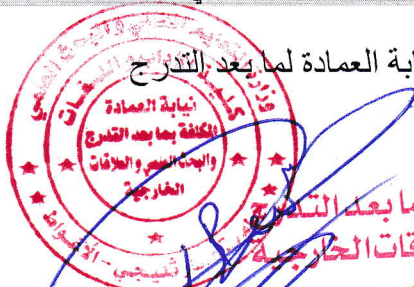 نيابة العمادة لما بعد التدرج
نيابة العمادة
المكلفة بما بعد التدرج
والبحث العلمي والعلاقات
الخارجية
ما بعد التدرج
قات الخارجية
ثليجي - الأغواط